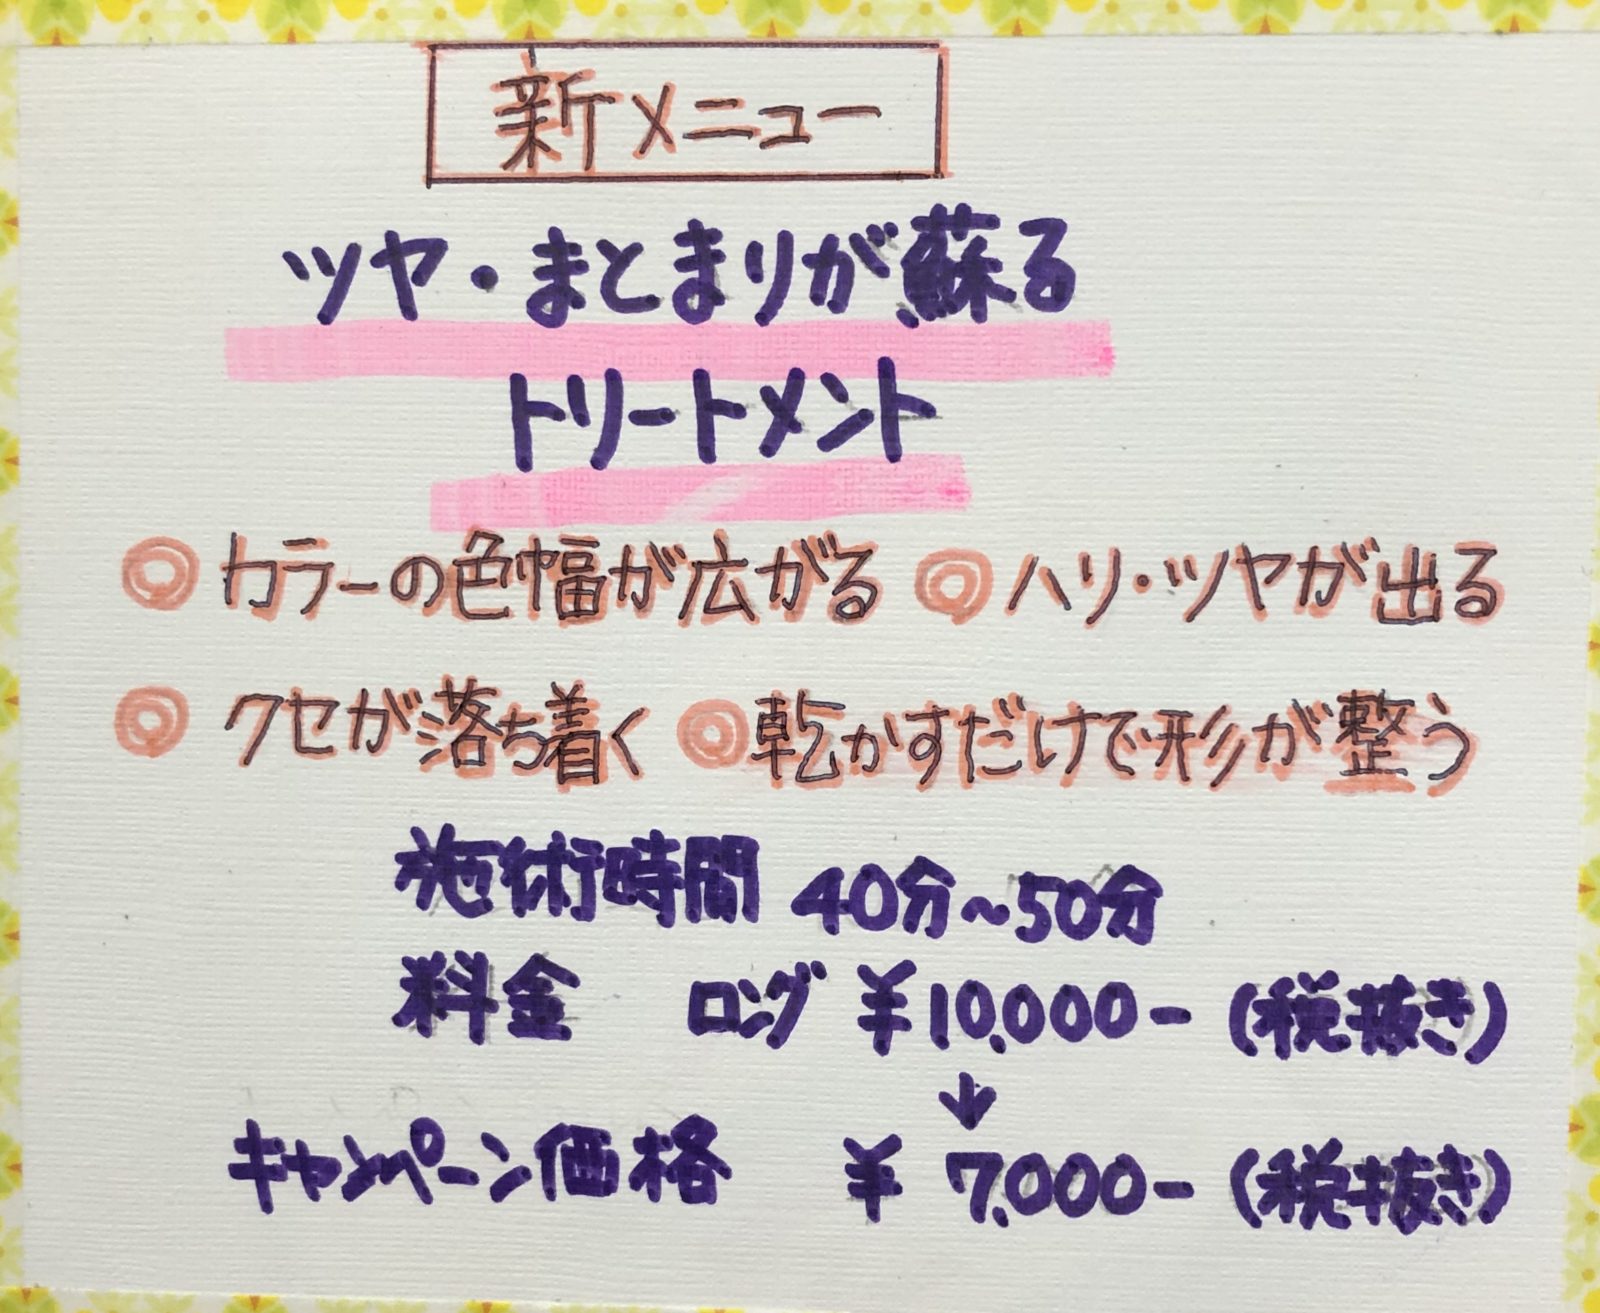 新メニュー
ツヤ・まとまりが蘇る
トリートメント
◎カラーの色幅が広がる ◎ハリ・ツヤが出る
◎クセが落ち着く ◎乾かすだけで形が整う
施術時間 40分~50分
料金 ロング ¥10,000- (税抜き)
↓
キャンペーン価格 ¥7,000- (税抜き)